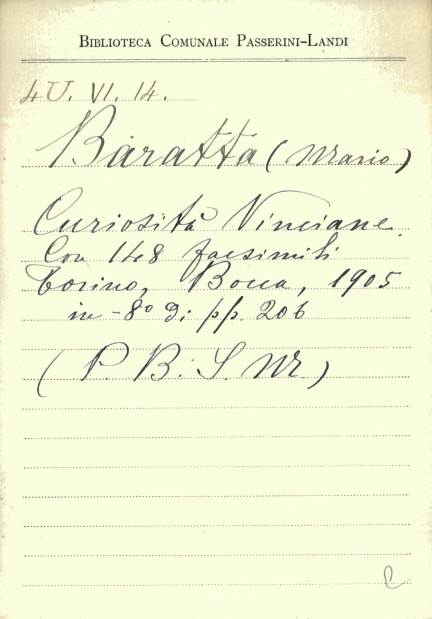 BIBLIOTECA COMUNALE PASSERINI-LANDI
4U. VI. 14.
Baratta (Mario)
Curiosità Vinciane.
Con 148 facsimili
Torino, Bocca, 1905
in-8º di pp. 206
(P. B. S. M.)